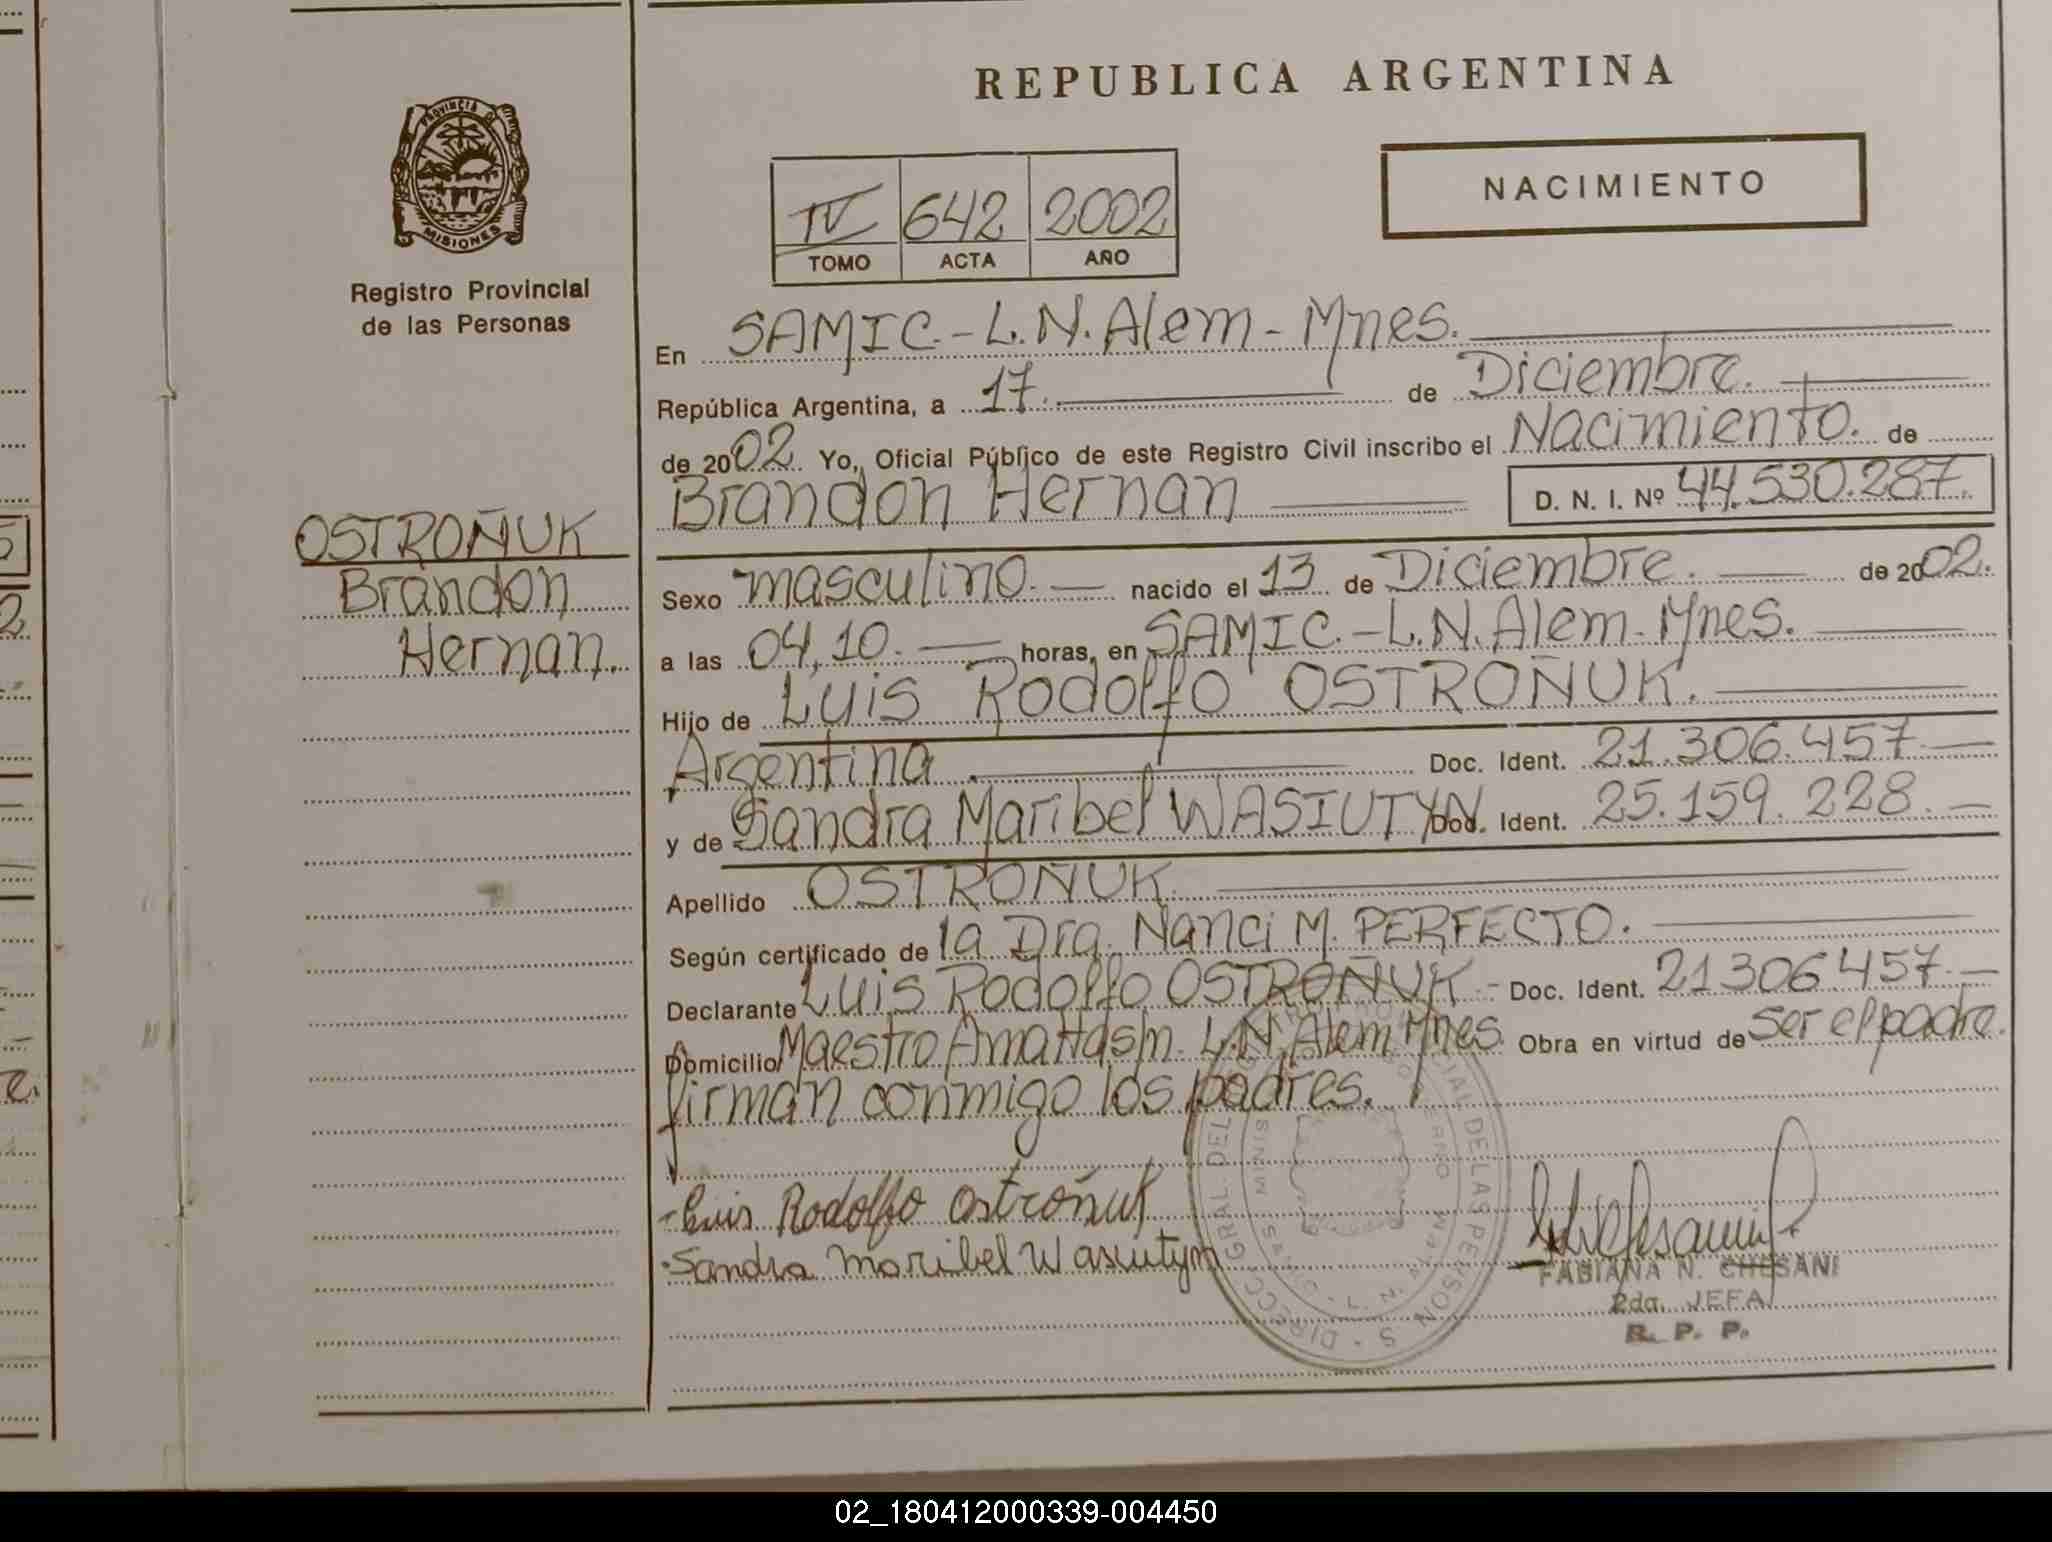 REPUBLICA ARGENTINA
NACIMIENTO
PROVINCIA DE
MISIONES
Registro Provincial
de las Personas
IV 642 2002
TOMO ACTA AÑO
En SAMIC.-L.N.Alem-Mnes.
República Argentina, a 17. de Diciembre.
de 2002. Yo, Oficial Público de este Registro Civil inscribo el Nacimiento. de
Brandon Hernan D. N. I. Nº 44.530.287.
OSTROÑUK
Brandon
Hernan.
Sexo masculino. nacido el 13 de Diciembre. de 2002.
a las 04,10. horas, en SAMIC.-L.N.Alem-Mnes.
Hijo de Luis Rodolfo OSTROÑUK.
Argentina. Doc. Ident. 21.306.457.
y de Sandra Maribel WASIUTYN Doc. Ident. 25.159.228.
Apellido OSTROÑUK.
Según certificado de la Dra. Nanci M. PERFECTO.
Declarante Luis Rodolfo OSTROÑUK.- Doc. Ident. 21306457.-
Domicilio Maestro s/n. L.N.Alem Mnes. Obra en virtud de ser el padre.
firman conmigo los padres.
-Luis Rodolfo Ostroñuk
Sandra Maribel Wasiutyn
FABIANA N. CHESANI
2da. JEFA
R. P. P.
DIRECC. GRAL. DEL REGISTRO PROVINCIAL DE LAS PERSONAS
02_180412000339-004450